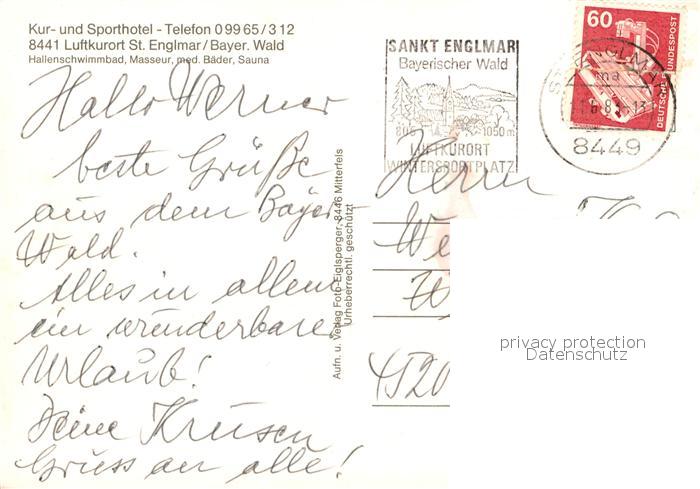 Kur- und Sporthotel - Telefon 0 99 65 / 3 12
8441 Luftkurort St. Englmar / Bayer. Wald
Hallenschwimmbad, Masseur, med. Bäder, Sauna
Hallo Werner
beste Grüße
aus dem Bayer.
Wald.
Alles in allem
ein wunderbarer
Urlaub!
Deine
Gruss an alle!
Aufn. u. Verlag Foto-Eiglsperger, 8446 Mitterfels
Urheberrechtl. geschützt
SANKT ENGLMAR
Bayerischer Wald
1050 m
LUFTKURORT
WINTERSPORTPLATZ
8449
60
DEUTSCHE BUNDESPOST
Herrn
We
4520
privacy protection
Datenschutz